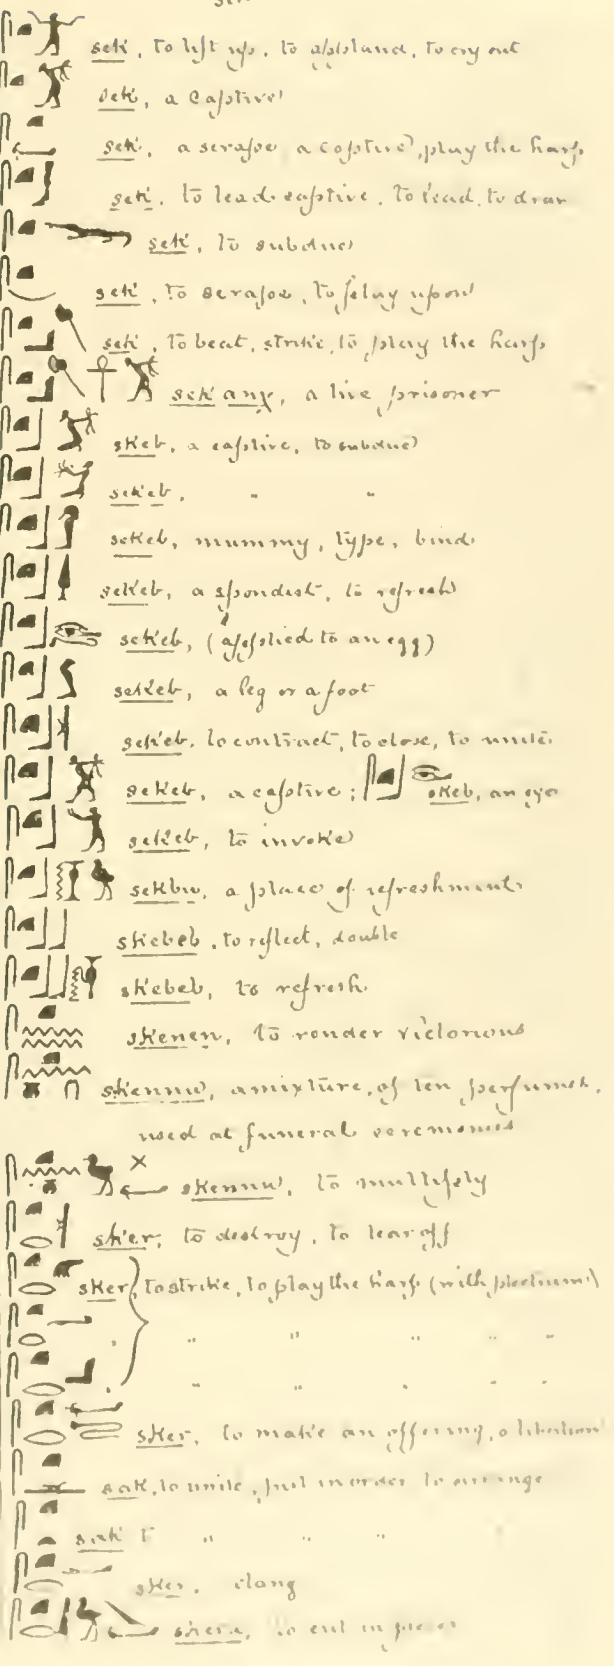 sek', to lift up, to applaud, to cry out
sek', a captive
sek', a scrape a captive, play the harp
sek', to lead captive, to lead, to draw
sek', to subdue
sek', to scrape, to play upon
sek', to beat, strike, to play the harp
sek' anχ, a live prisoner
skeb, a captive, to subdue
sek'eb, " "
sek'eb, mummy, type, bind
sek'eb, a spondist, to refresh
sek'eb, (applied to an egg)
sek'eb, a leg or a foot
sek'eb, to contract, to close, to unite
sek'eb, a captive; skeb, an eye
sek'eb, to invoke
sekbu, a place of refreshment
sk'ebeb, to reflect, double
sk'ebeb, to refresh
sk'enen, to render victorious
sk'ennu, a mixture, of ten perfumes,
used at funeral ceremonies
sk'ennu, to multiply
sk'er, to destroy, to tear off
sker, to strike, to play the harp (with plectrum)
" " " " " "
" " " " " "
sker, to make an offering, a libation
sak, to unite, put in order to arrange
sak t " " "
sker, clang
skera, to cut in pieces